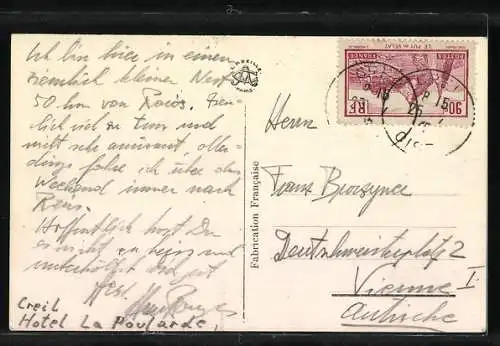 Ich bin hier in einem
ziemlich kleinen Nest
50 km von Paris. Ziem-
lich viel zu tun und
nicht sehr amüsant aller-
dings fahre ich über das
Weekend immer nach
Paris.
Hoffentlich hast Du
es nicht zu heiss und
unterhältst Dich gut
Herzl.
Creil
Hotel La Poularde,
Fabrication Française
POSTES
FRANCE
LE PUY-EN-VELAY
90c
RF
Herrn
Franz
Deutschmeisterplatz 2
Vienne I
Autriche